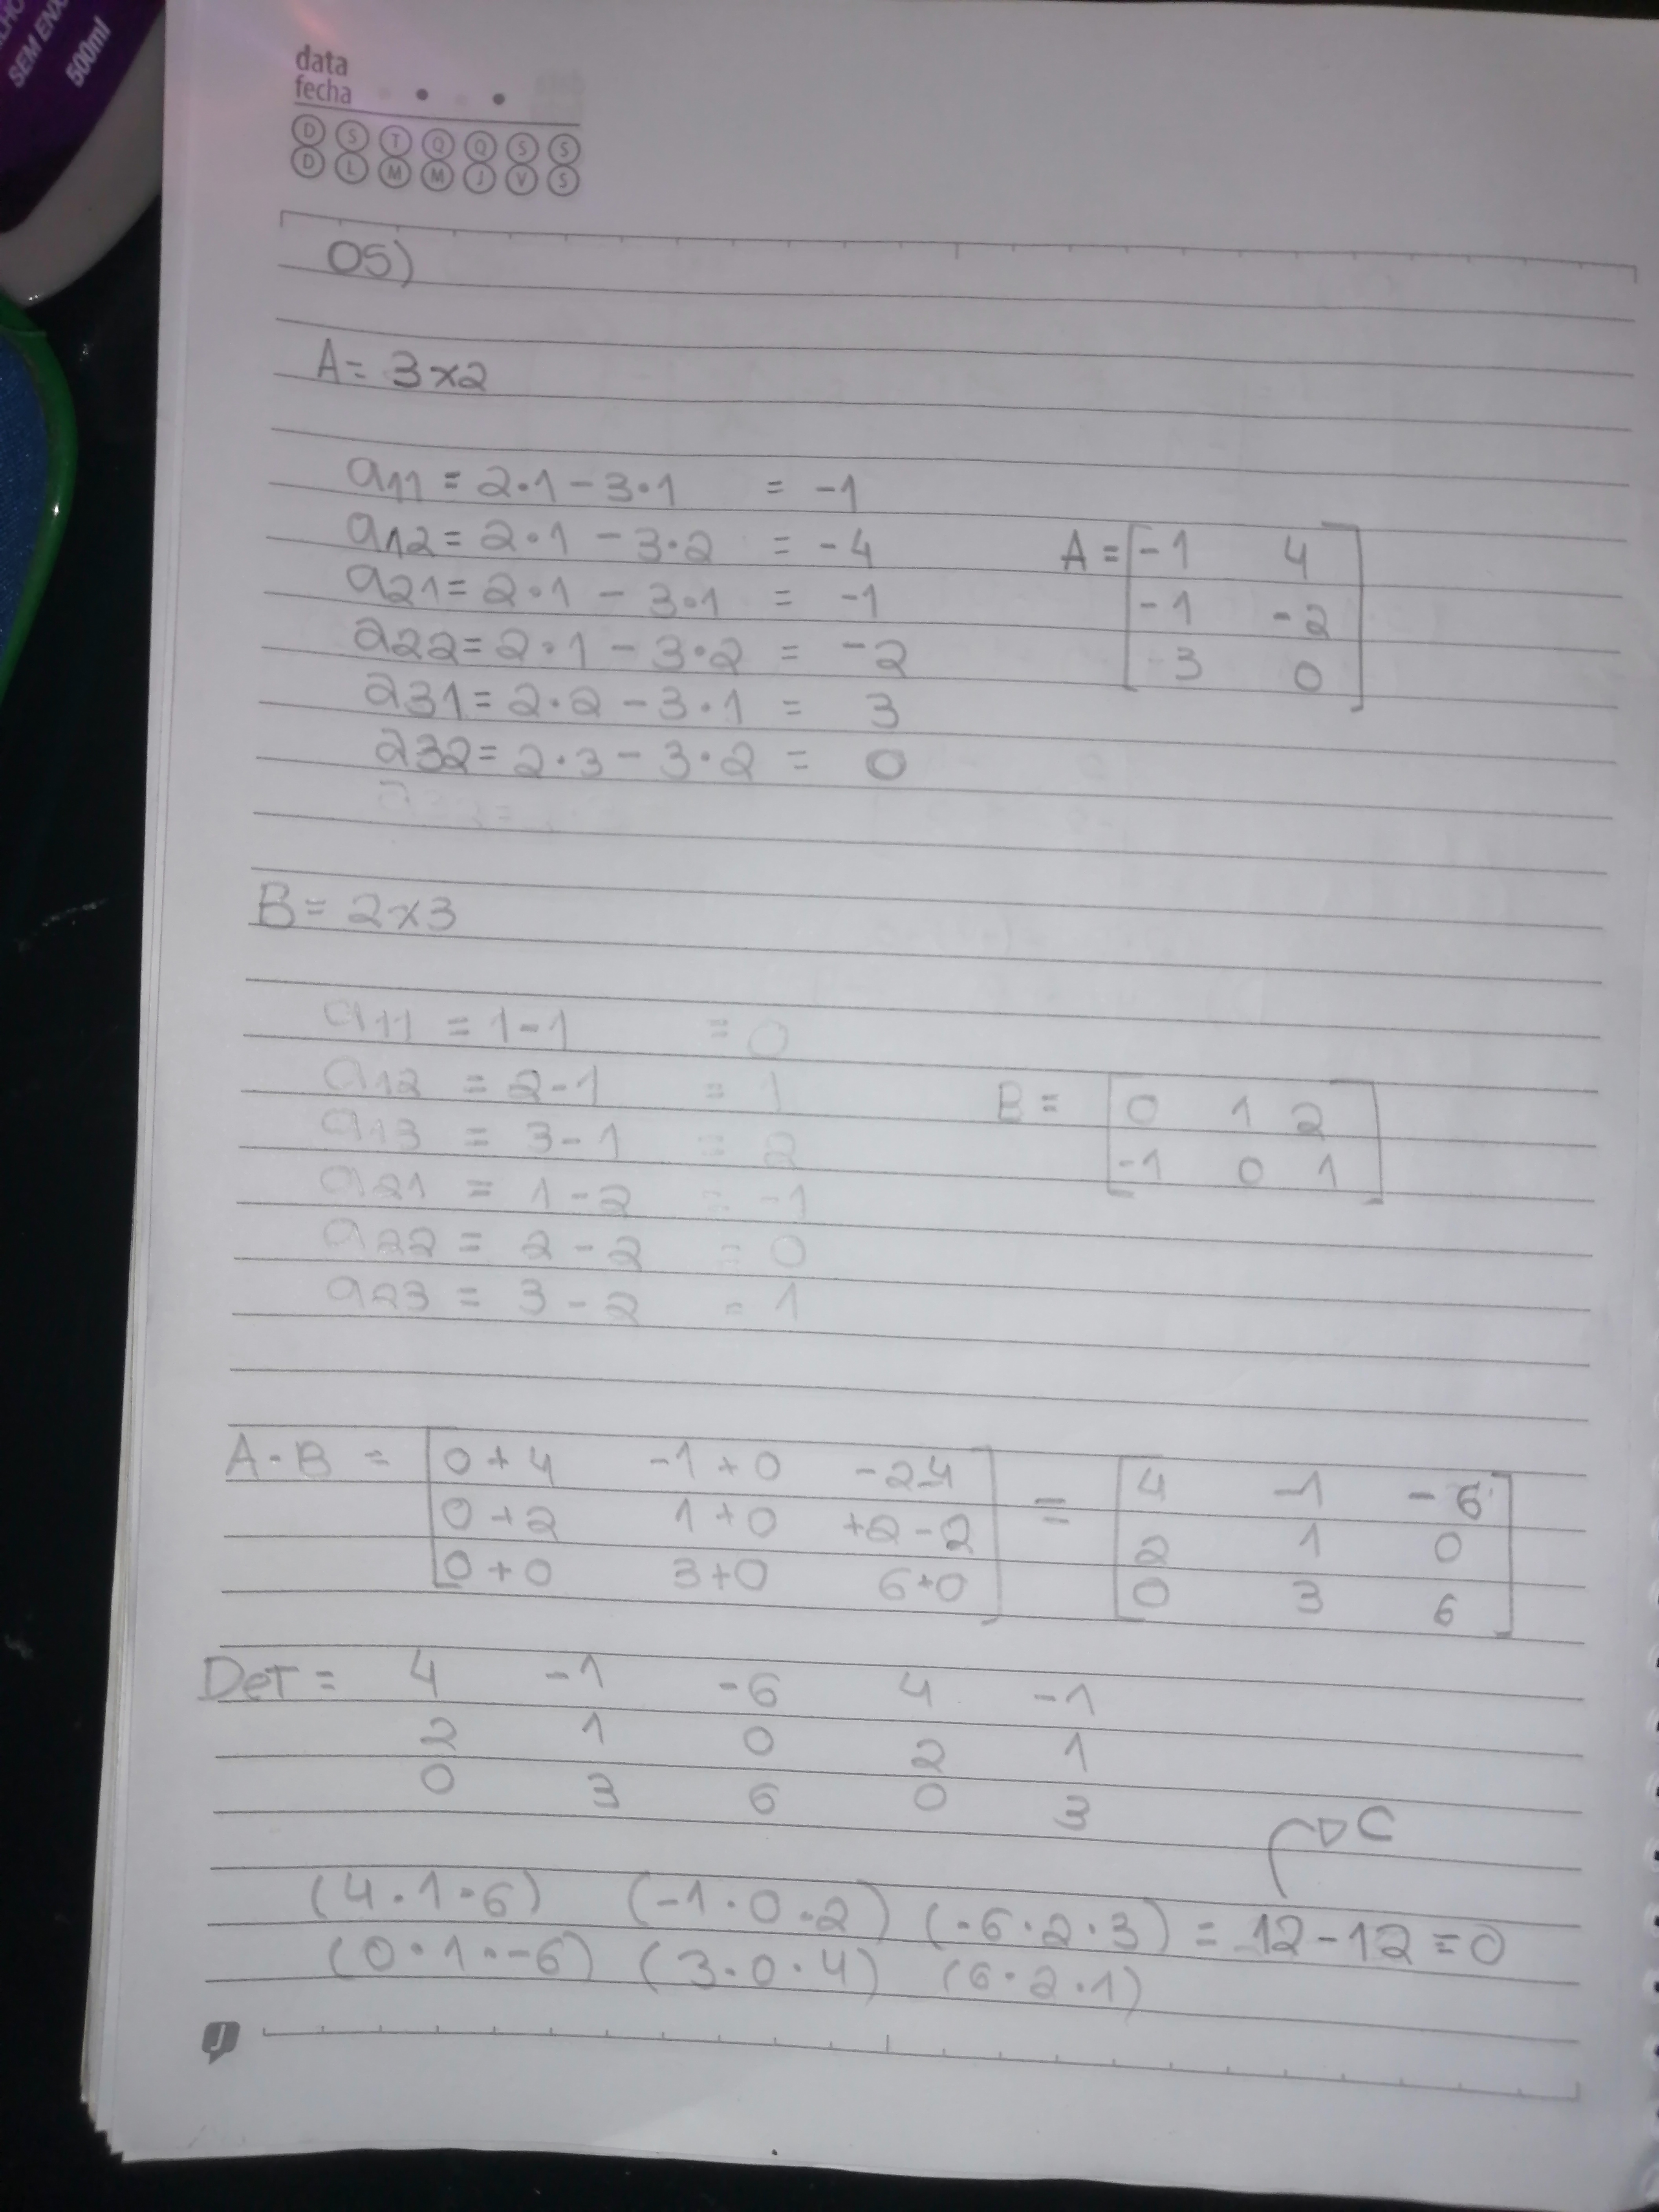 SEM ENX
500ml
data
fecha
D S T Q Q S S
D L M M J V S
05)
A= 3x2
a11 = 2·1 - 3·1 = -1
a12 = 2·1 - 3·2 = -4
a21 = 2·1 - 3·1 = -1
a22 = 2·1 - 3·2 = -2
a31 = 2·2 - 3·1 = 3
a32 = 2·3 - 3·2 = 0
A = -1 4
-1 -2
3 0
B = 2x3
a11 = 1-1 = 0
a12 = 2-1 = 1
a13 = 3-1 = 2
a21 = 1-2 = -1
a22 = 2-2 = 0
a23 = 3-2 = 1
B = 0 1 2
-1 0 1
A·B = 0+4 -1+0 -2-4 = 4 -1 -6
0+2 1+0 +2-2 2 1 0
0+0 3+0 6+0 0 3 6
Det = 4 -1 -6 4 -1
2 1 0 2 1
0 3 6 0 3
C
(4·1·6) (-1·0·2) (-6·2·3) = 12-12=0
(0·1·-6) (3·0·4) (6·2·1)
J